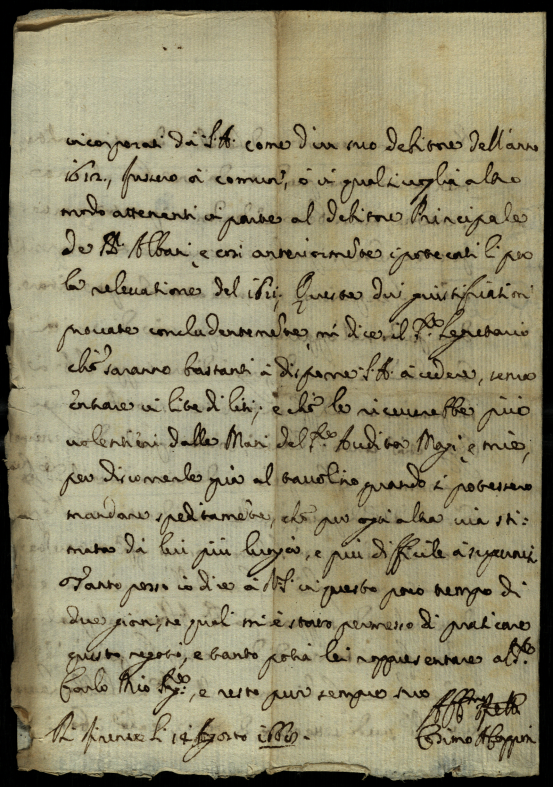 incorporati da S.A. come d'un suo debitore dell'anno
1612., fussero ò comuni, ò in qualsivoglia altro
modo attenenti in parte al debitore Principale
de Albari, e così anteriormente ipotecati li per
la relevatione del 1611; Queste due giustificationi
provate concludentemente, mi dice il Segretario
che saranno bastanti à disporre S.A. à cedere, senza
entrare in lite di liti; e che le riceverebbe più
volentieri dalle Mani del Auditor e mie,
per discorrerle già al tavolino quando si potessero
mandare speditamente, che per ogni altra via sti-
mata da lui più lunga, e più difficile à
Tanto posso io dire à in questo poco tempo di
due giorni, ne quali mi è stato permesso di praticare
questo negotio, e tanto potrà lei rappresentare al
Carlo Mio Sig.re, e resto pur sempre suo
Di Firenze li 14 Agosto
Cosimo